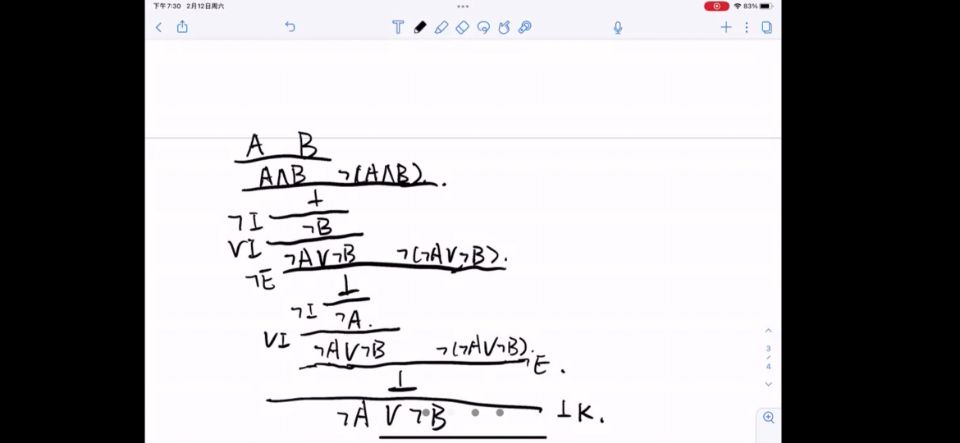 下午7:30 2月12日周六
83%
A B
A∧B ¬(A∧B).
⊥
¬I
¬B
∨I
¬A∨¬B ¬(¬A∨¬B).
¬E
⊥
¬I
¬A.
∨I
¬A∨¬B ¬(¬A∨¬B).
¬E.
⊥
¬A ∨ ¬B ⊥K.
3
/
4